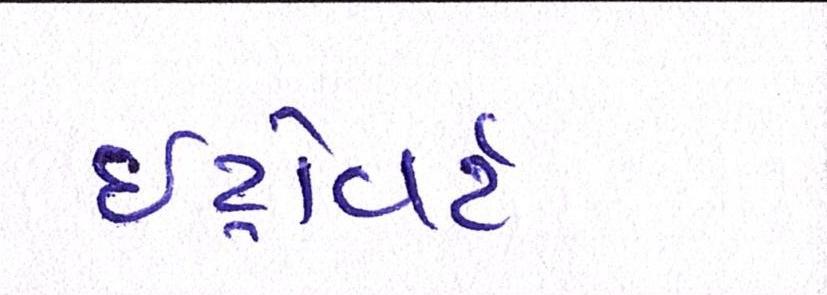 ઈટ્રોવર્ટ